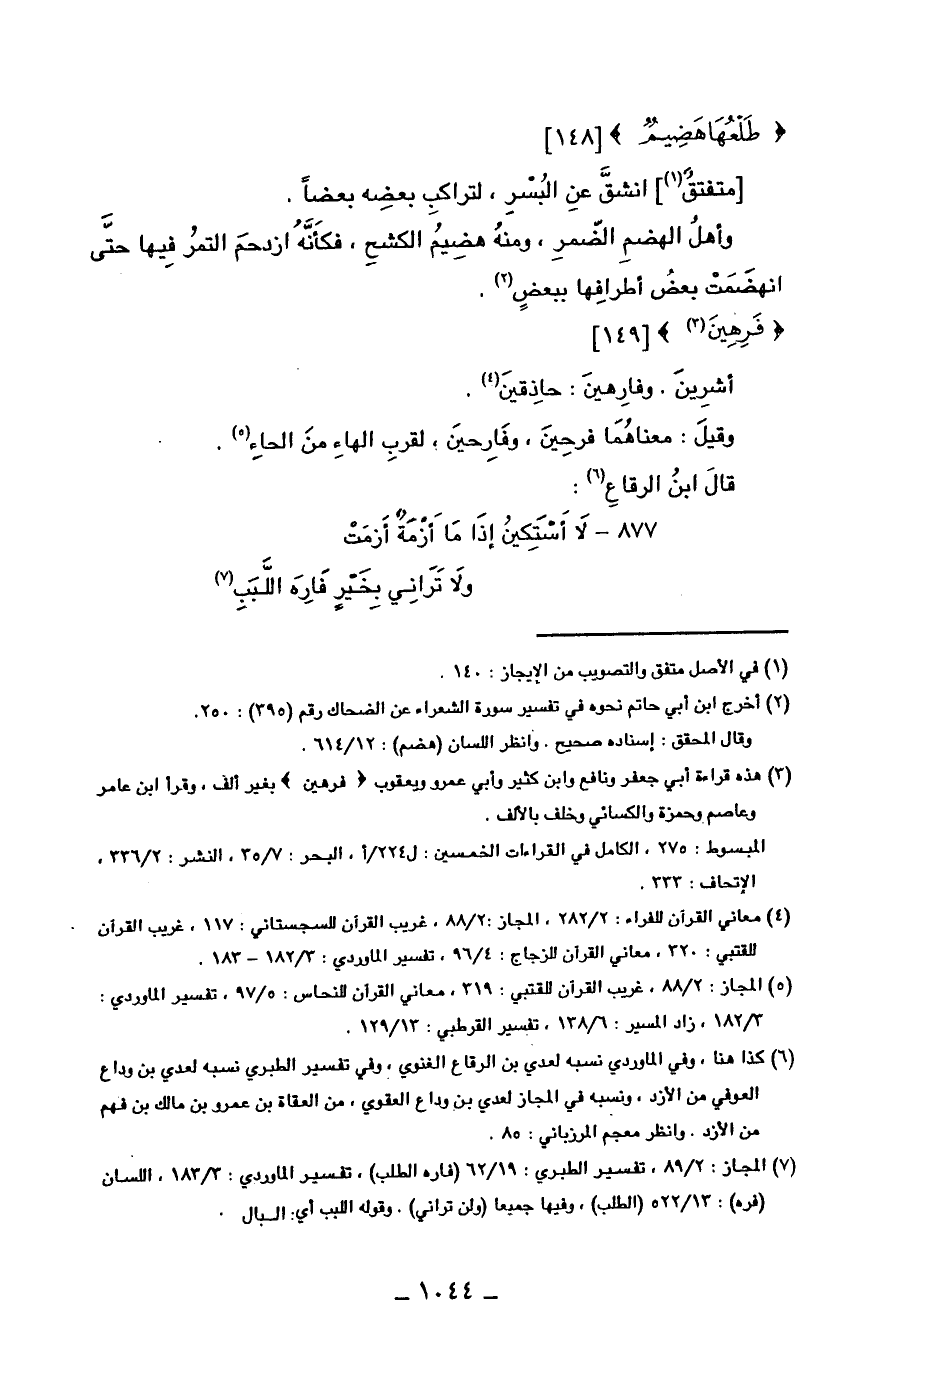 ﴿ طَلْعُهَا هَضِيمٌ ﴾ [١٤٨]
[متفتقٌ(١)] انشقَّ عنِ البُسْرِ ، لتراكبِ بعضِه بعضاً .
وأهلُ الهضمِ الضّمرِ ، ومنهُ هضيمُ الكشحِ ، فكأنَّهُ ازدحمَ التمرُ فِيها حتَّى
انهضَمَتْ بعضُ أطرافِها ببعضٍ(٢) .
﴿ فَرِهِينَ(٣) ﴾ [١٤٩]
أشرِينَ . وفارِهينَ : حاذِقينَ(٤) .
وقيلَ : معناهُمَا فرحِينَ ، وفَارِحينَ ، لقربِ الهاءِ منَ الحاءِ(٥) .
قالَ ابنُ الرقاعِ(٦) :
٨٧٧ – لَا أَسْتَكِينُ إِذَا مَا أَزْمَةٌ أَزمَتْ
ولَا تَرَانِي بِخَيْرٍ فَارِهَ اللَّبَبِ(٧)
(١) في الأصل متفق والتصويب من الإيجاز : ١٤٠ .
(٢) أخرج ابن أبي حاتم نحوه في تفسير سورة الشعراء عن الضحاك رقم (٣٩٥) : ٢٥٠.
وقال المحقق : إسناده صحيح . وانظر اللسان (هضم) : ٦١٤/١٢ .
(٣) هذه قراءة أبي جعفر ونافع وابن كثير وأبي عمرو ويعقوب ﴿ فرهين ﴾ بغير ألف ، وقرأ ابن عامر
وعاصم وحمزة والكسائي وخلف بالألف .
المبسوط : ٢٧٥ ، الكامل في القراءات الخمسين : ل٢٢٤/أ ، البحر : ٣٥/٧ ، النشر : ٣٣٦/٢ ،
الإتحاف : ٣٣٣ .
(٤) معاني القرآن للفراء : ٢٨٢/٢ ، المجاز :٨٨/٢ ، غريب القرآن للسجستاني : ١١٧ ، غريب القرآن
للقتبي : ٣٢٠ ، معاني القرآن للزجاج : ٩٦/٤ ، تفسير الماوردي : ١٨٢/٣ – ١٨٣ .
(٥) المجاز : ٨٨/٢ ، غريب القرآن للقتبي : ٣١٩ ، معاني القرآن للنحاس : ٩٧/٥ ، تفسير الماوردي :
١٨٢/٣ ، زاد المسير : ١٣٨/٦ ، تفسير القرطبي : ١٢٩/١٣ .
(٦) كذا هنا ، وفي الماوردي نسبه لعدي بن الرقاع الغنوي ، وفي تفسير الطبري نسبه لعدي بن وداع
العوفي من الأزد ، ونسبه في المجاز لعدي بن وداع العقوي ، من العقاة بن عمرو بن مالك بن فهم
من الأزد . وانظر معجم المرزباني : ٨٥ .
(٧) المجاز : ٨٩/٢ ، تفسير الطبري : ٦٢/١٩ (فاره الطلب) ، تفسير الماوردي : ١٨٣/٣ ، اللسان
(فره) : ٥٢٢/١٣ (الطلب) ، وفيها جميعا (ولن تراني) . وقوله اللبب أي: البال .
– ١٠٤٤ –